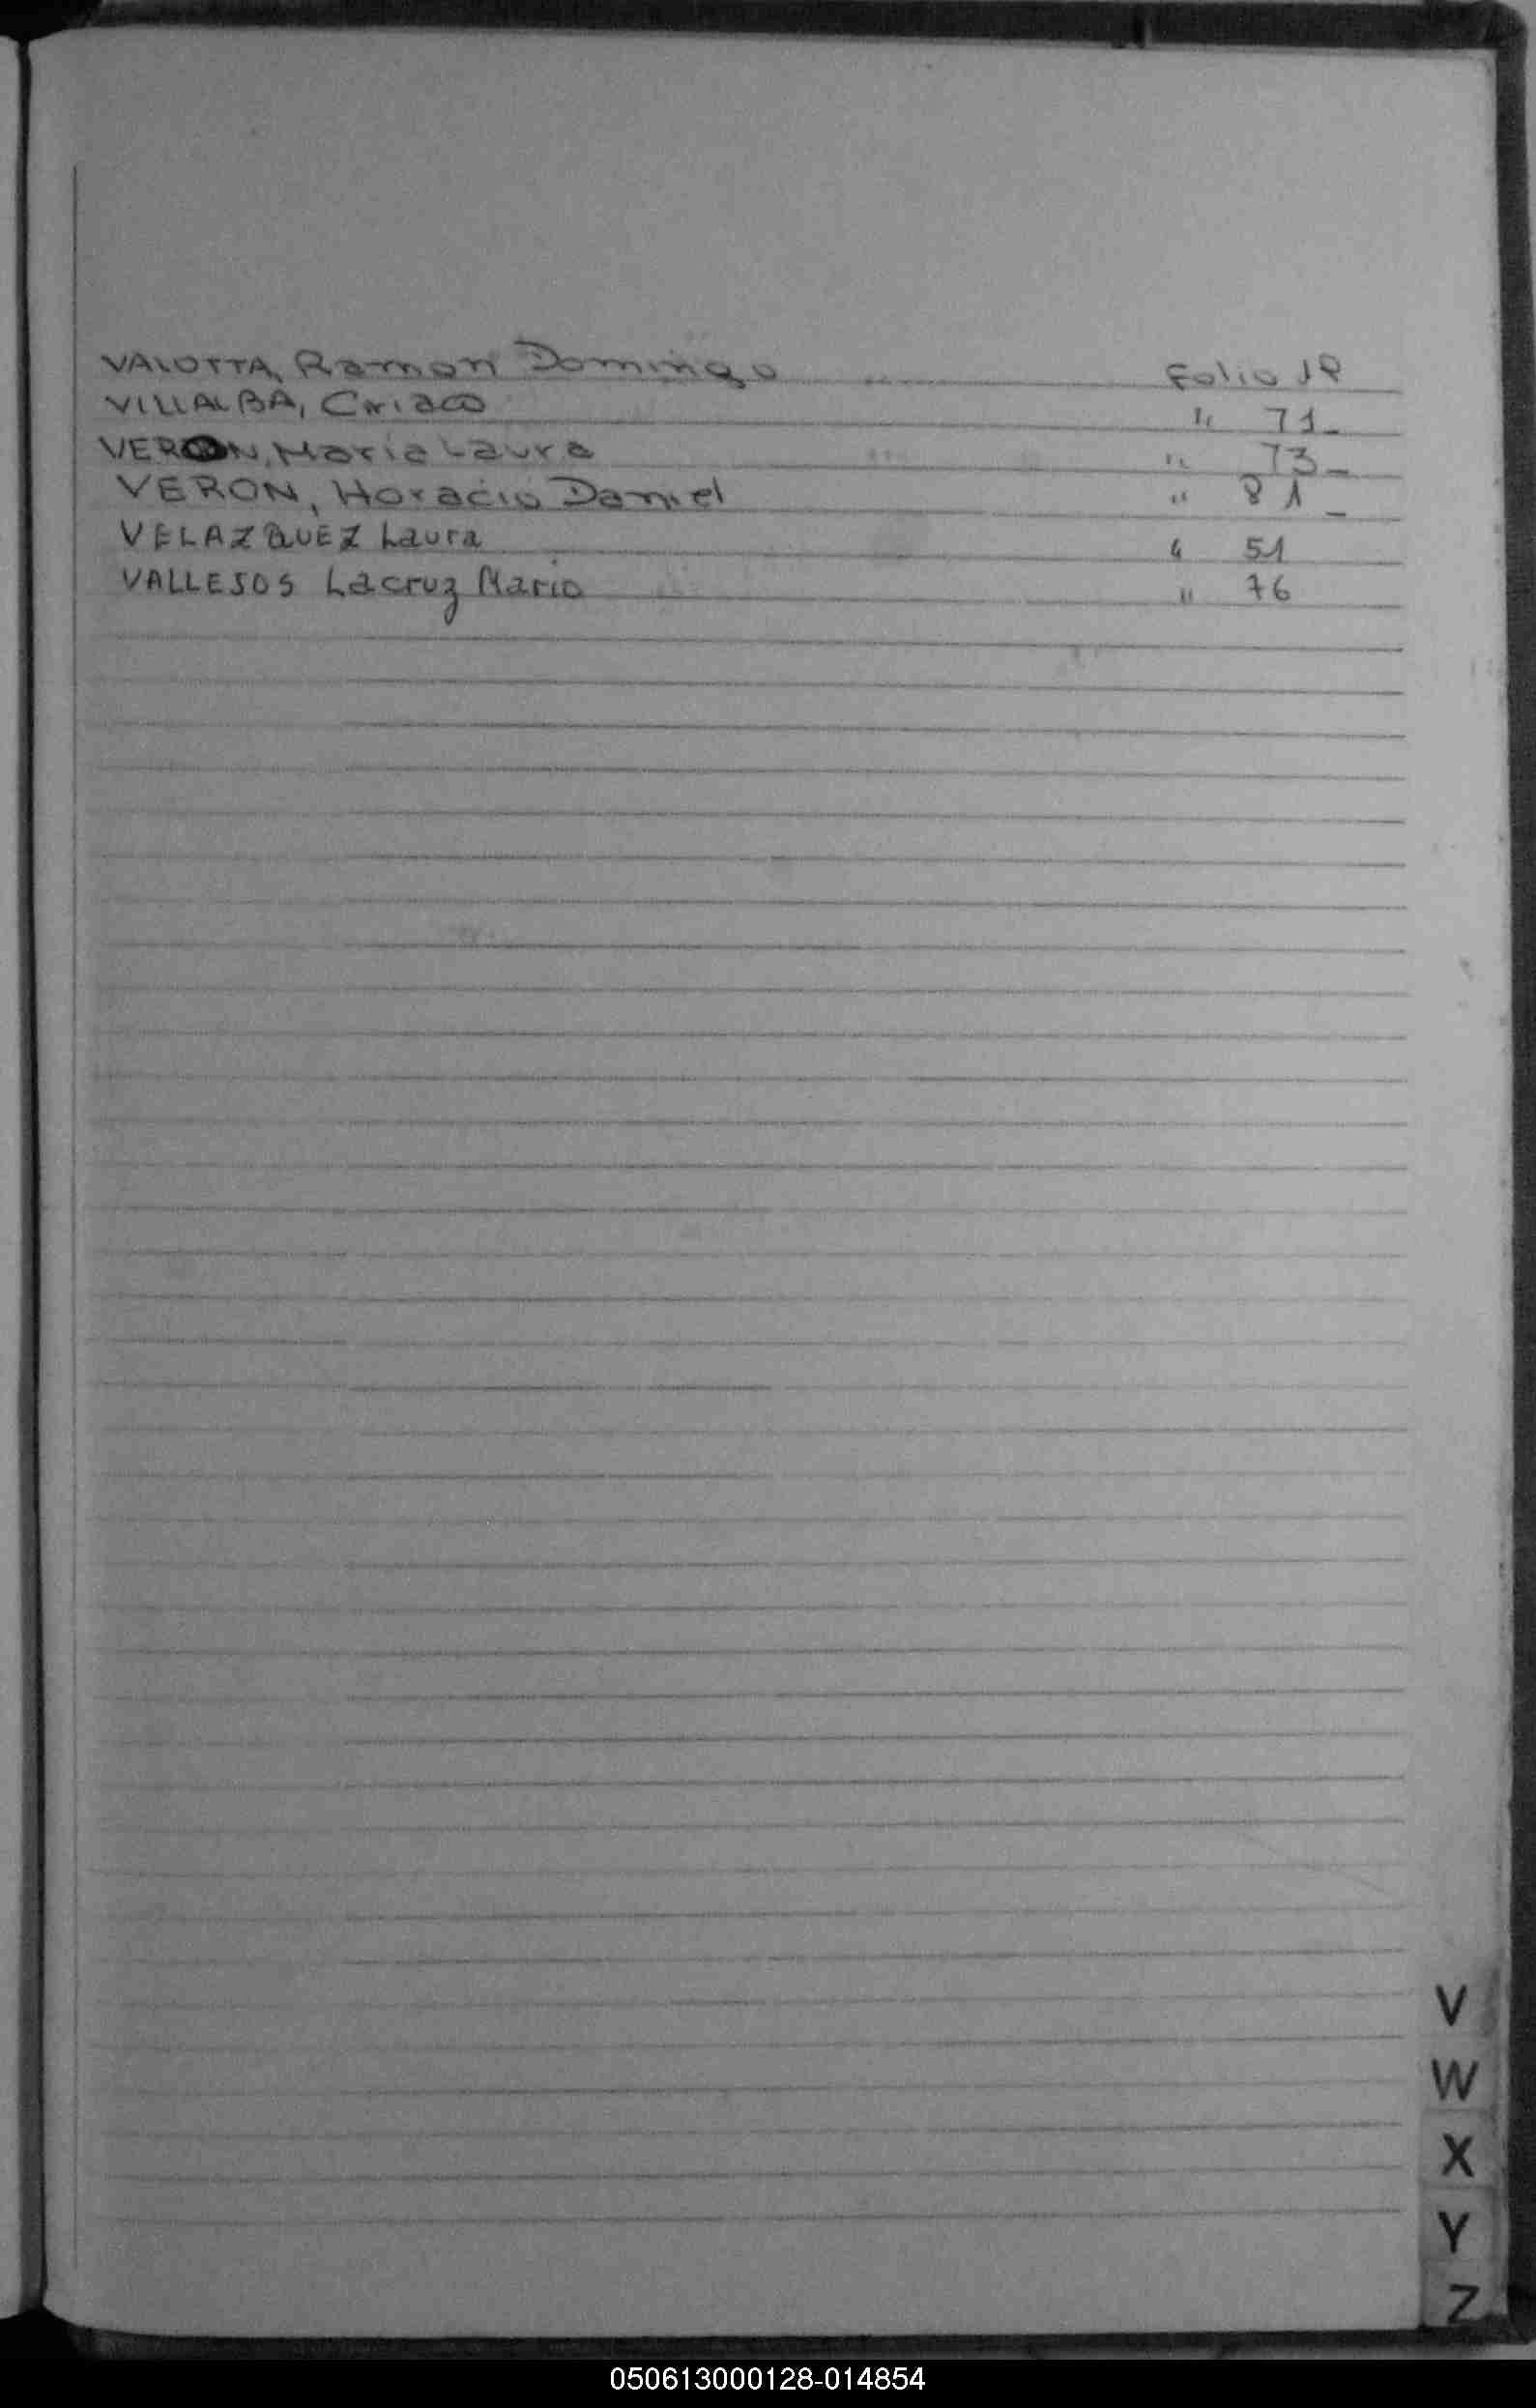 VALOTTA, Ramon Domingo Folio 18
VILLALBA, Ciriaco " 71-
VERON, Maria Laura " 73-
VERON, Horacio Daniel " 81-
VELAZQUEZ Laura " 51
VALLEJOS Lacruz Mario " 76
V
W
X
Y
Z
050613000128-014854